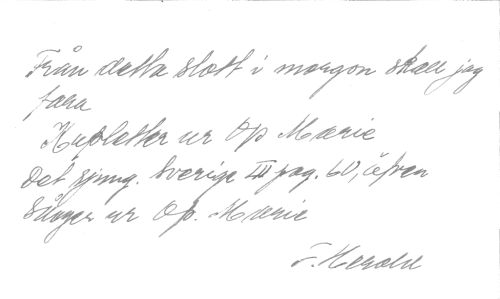 Från detta slott i morgon skall jag
fara
Kupletter ur Op Marie
Det sjung. Sverige III pag. 60, även
Sånger ur Op. Marie
F. Herold